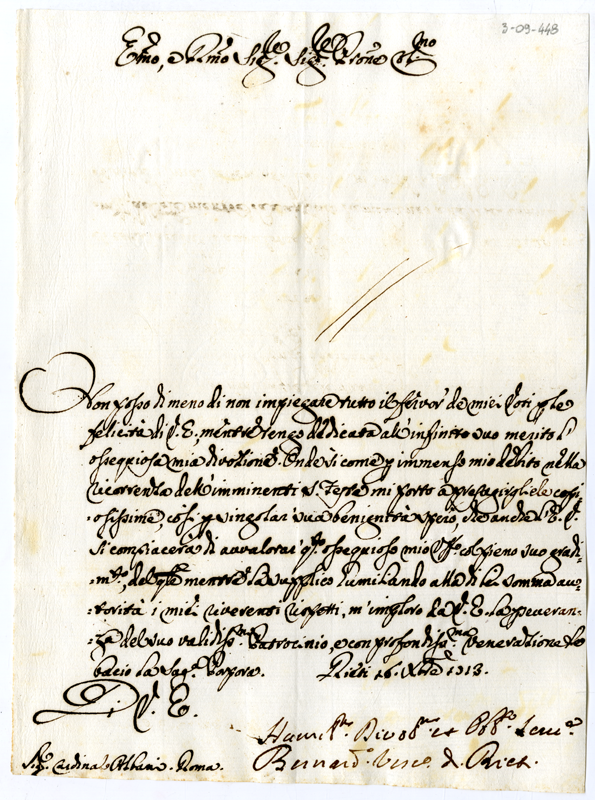 3-09-448
Emo, e Rmo Sigre Sigre Prone Colmo
Non posso di meno di non impiegare tutto il fervor de miei Voti p le
felicità di V. E. mentre tengo dedicata all'infinito suo merito l'
ossequiosa mia divozione. Onde si come p immenso mio debito nella
ricorrenza dell'imminenti Ste Feste mi porto a presagirgliele copi-
osissime, così p singolar sua benignità spero, che anche l'E. V.
si compiacerà di avvalorar qto ossequioso mio Vffo col pieno suo gradi-
mto, del qle mentre la supplico humiliando alla di lei somma au-
torità i miei riverenti rispetti, m'imploro da V. E. la perseveran-
za del suo validissmo Patrocinio, e con profondissma venerazione le
bacio la Sagra Porpora. Rieti 16. Xbre 1713.
D. V. E.
Sigr Cardinal Albani. Roma.
Humilmo Divotmo et Obbmo Servre
Bernardo Vesco di Rieti